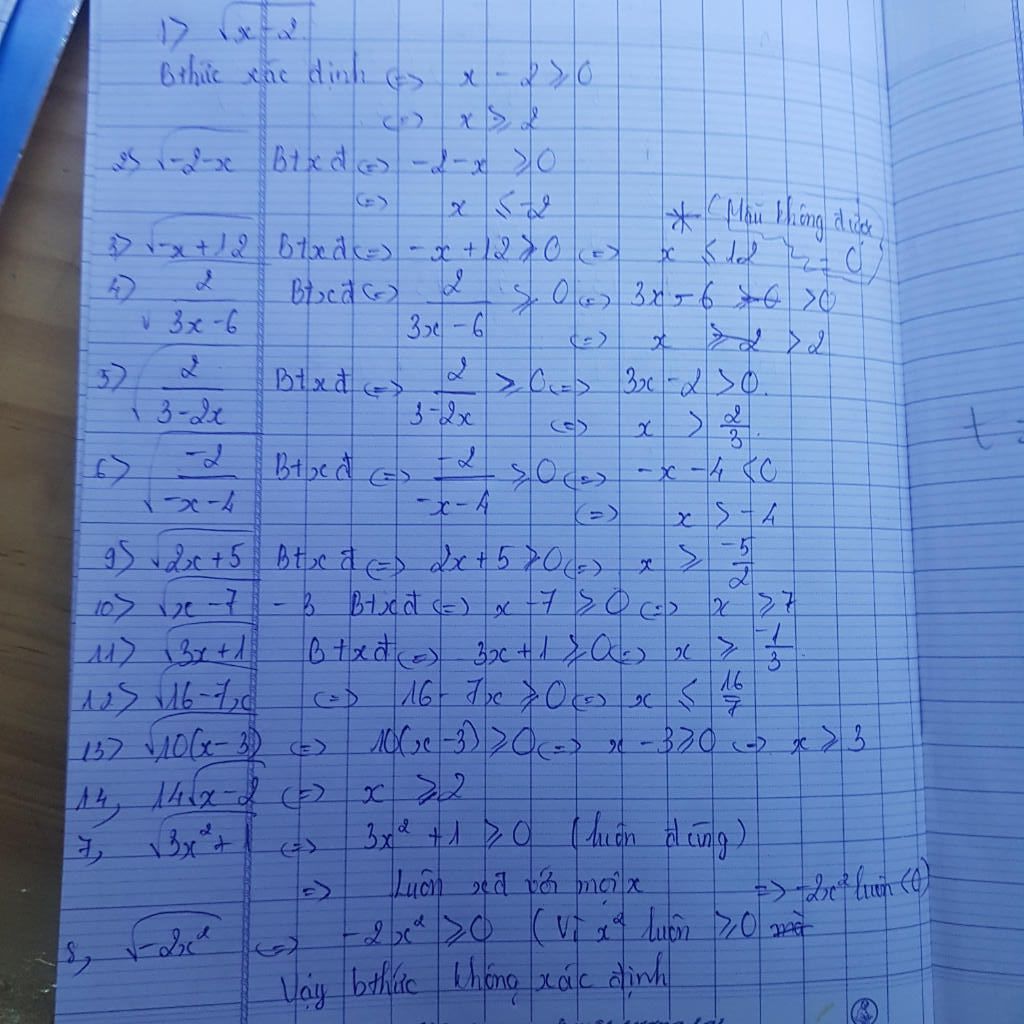 1> √x-2
Bthức xác định <=> x - 2 ≥ 0
<=> x ≥ 2
2> √-2-x Btxđ <=> -2-x ≥ 0
<=> x ≤ -2
* (Mẫu không được = 0)
3> √-x+12 Btxđ <=> -x+12 ≥ 0 <=> x ≤ 12
4> √2/(3x-6) Btxđ <=> 2/(3x-6) ≥ 0 <=> 3x-6 ≥ 0 > 0
<=> x ≥ 2 > 2
5> √2/(3-2x) Btxđ <=> 2/(3-2x) ≥ 0 <=> 3x-2 > 0.
<=> x > 2/3.
6> √-2/(-x-4) Btxđ <=> -2/(-x-4) ≥ 0 <=> -x-4 < 0
<=> x > -4
9> √2x+5 Btxđ <=> 2x+5 ≥ 0 <=> x ≥ -5/2
10> √x-7 - 3 Btxđ <=> x-7 ≥ 0 <=> x ≥ 7
11> √3x+1 Btxđ <=> 3x+1 ≥ 0 <=> x ≥ -1/3.
12> √16-7x <=> 16-7x ≥ 0 <=> x ≤ 16/7
13> √10(x-3) <=> 10(x-3) ≥ 0 <=> x-3 ≥ 0 <=> x ≥ 3
14, 14√x-2 <=> x ≥ 2
7, √3x²+1 <=> 3x²+1 ≥ 0 (luôn đúng)
=> Luôn xđ với mọi x
=> -2x² luôn <0)
8, √-2x² <=> -2x² ≥ 0 (Vì x² luôn ≥ 0 mà
Vậy bthức không xác định
t =